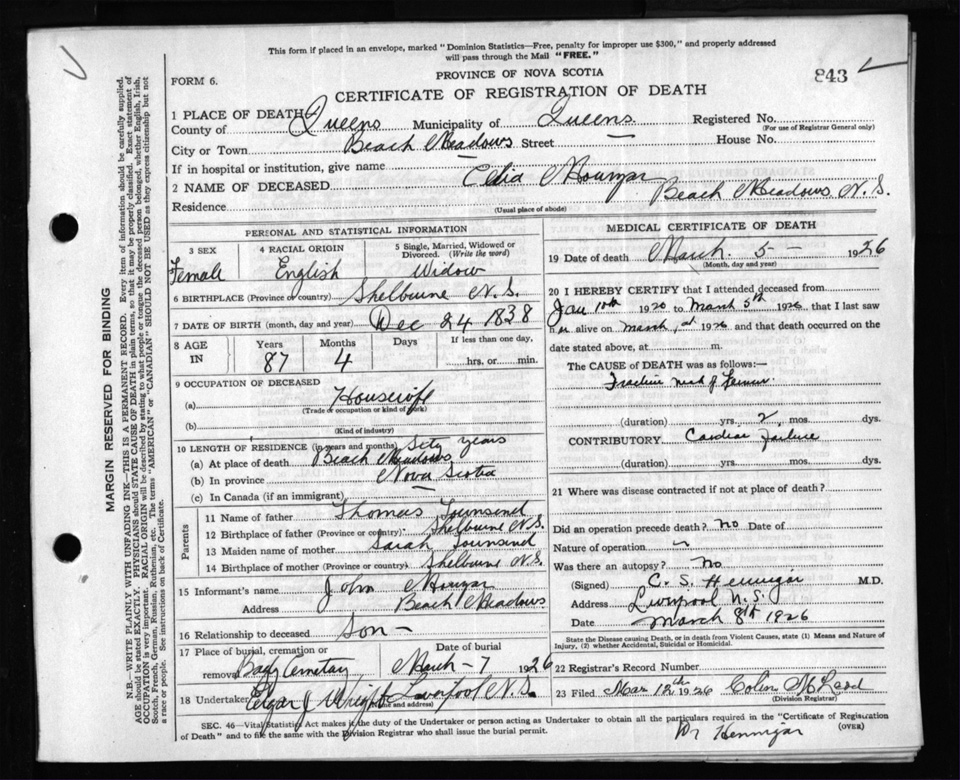 This form if placed in an envelope, marked "Dominion Statistics—Free, penalty for improper use $300," and properly addressed
will pass through the Mail "FREE."
FORM 6.
PROVINCE OF NOVA SCOTIA
843
CERTIFICATE OF REGISTRATION OF DEATH
1 PLACE OF DEATH
County of Queens Municipality of Queens Registered No.
(For use of Registrar General only)
City or Town Beach Meadows Street House No.
If in hospital or institution, give name
2 NAME OF DECEASED Celia
Residence Beach Meadows N.S.
(Usual place of abode)
PERSONAL AND STATISTICAL INFORMATION
3 SEX Female
4 RACIAL ORIGIN English
5 Single, Married, Widowed or Divorced. (Write the word) Widow
6 BIRTHPLACE (Province or country) Shelburne N.S.
7 DATE OF BIRTH (month, day and year) Dec 24 1838
8 AGE IN Years 87 Months 4 Days If less than one day, hrs. or min.
9 OCCUPATION OF DECEASED
(a) Housewife
(Trade or occupation or kind of work)
(b)
(Kind of industry)
10 LENGTH OF RESIDENCE (in years and months) Sixty years
(a) At place of death Beach Meadows
(b) In province Nova Scotia
(c) In Canada (if an immigrant)
Parents
11 Name of father Thomas Townsend
12 Birthplace of father (Province or country) Shelburne N.S.
13 Maiden name of mother Sarah Townsend
14 Birthplace of mother (Province or country) Shelburne N.S.
15 Informant's name John
Address Beach Meadows
16 Relationship to deceased Son
17 Place of burial, cremation or
removal Cemetary March - 7 1926
18 Undertaker Edgar J Wright Liverpool N.S.
(Name and address)
MEDICAL CERTIFICATE OF DEATH
19 Date of death March 5 - 1926
(Month, day and year)
20 I HEREBY CERTIFY that I attended deceased from
Jan 10th 1920 to March 5th 1926, that I last saw
h alive on March 1926 and that death occurred on
date stated above, at m.
The CAUSE OF DEATH was as follows:—
Fracture neck of Femur.
(duration) yrs. 2 mos. dys.
CONTRIBUTORY Cardiac Failure
(duration) yrs. mos. dys.
21 Where was disease contracted if not at place of death?
Did an operation precede death? No Date of
Nature of operation
Was there an autopsy? No
(Signed) C. S. Hennigar M.D.
Address Liverpool N.S.
Date March 8th 1926
State the Disease causing Death, or in death from Violent Causes, state (1) Means and Nature of
Injury, (2) whether Accidental, Suicidal or Homicidal.
22 Registrar's Record Number
23 Filed Mar 12th 1926 Colin McLeod
(Division Registrar)
SEC. 46—Vital Statistics Act makes it the duty of the Undertaker or person acting as Undertaker to obtain all the particulars required in the "Certificate of Registration
of Death" and to file the same with the Division Registrar who shall issue the burial permit.
(OVER)
Dr Hennigar
MARGIN RESERVED FOR BINDING
N.B.—WRITE PLAINLY WITH UNFADING INK—THIS IS A PERMANENT RECORD. Every item of information should be carefully supplied.
AGE should be stated EXACTLY. PHYSICIANS should STATE CAUSE OF DEATH in plain terms, so that it may be properly classified. Exact statement of
OCCUPATION is very important. RACIAL ORIGIN will be described by stating to what people or tongue the deceased person belonged, whether English, Irish,
Scotch, French, German, Russian, Ruthenian, etc. The terms "AMERICAN" or "CANADIAN" SHOULD NOT BE USED as they express citizenship but not
a race or people. See instructions on back of Certificate.